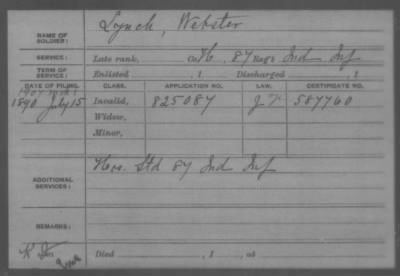 NAME OF SOLDIER: Lynch, Webster
SERVICE: Late rank, Co. H, 87 Reg't Ind Inf
TERM OF SERVICE: Enlisted , 1 Discharged , 1
DATE OF FILING. CLASS. APPLICATION NO. LAW. CERTIFICATE NO.
1890 July 15 Invalid, 825087 587760
Widow,
Minor,
ADDITIONAL SERVICES: Hos. Std 87 Ind Inf
REMARKS:
Died , 1 , at